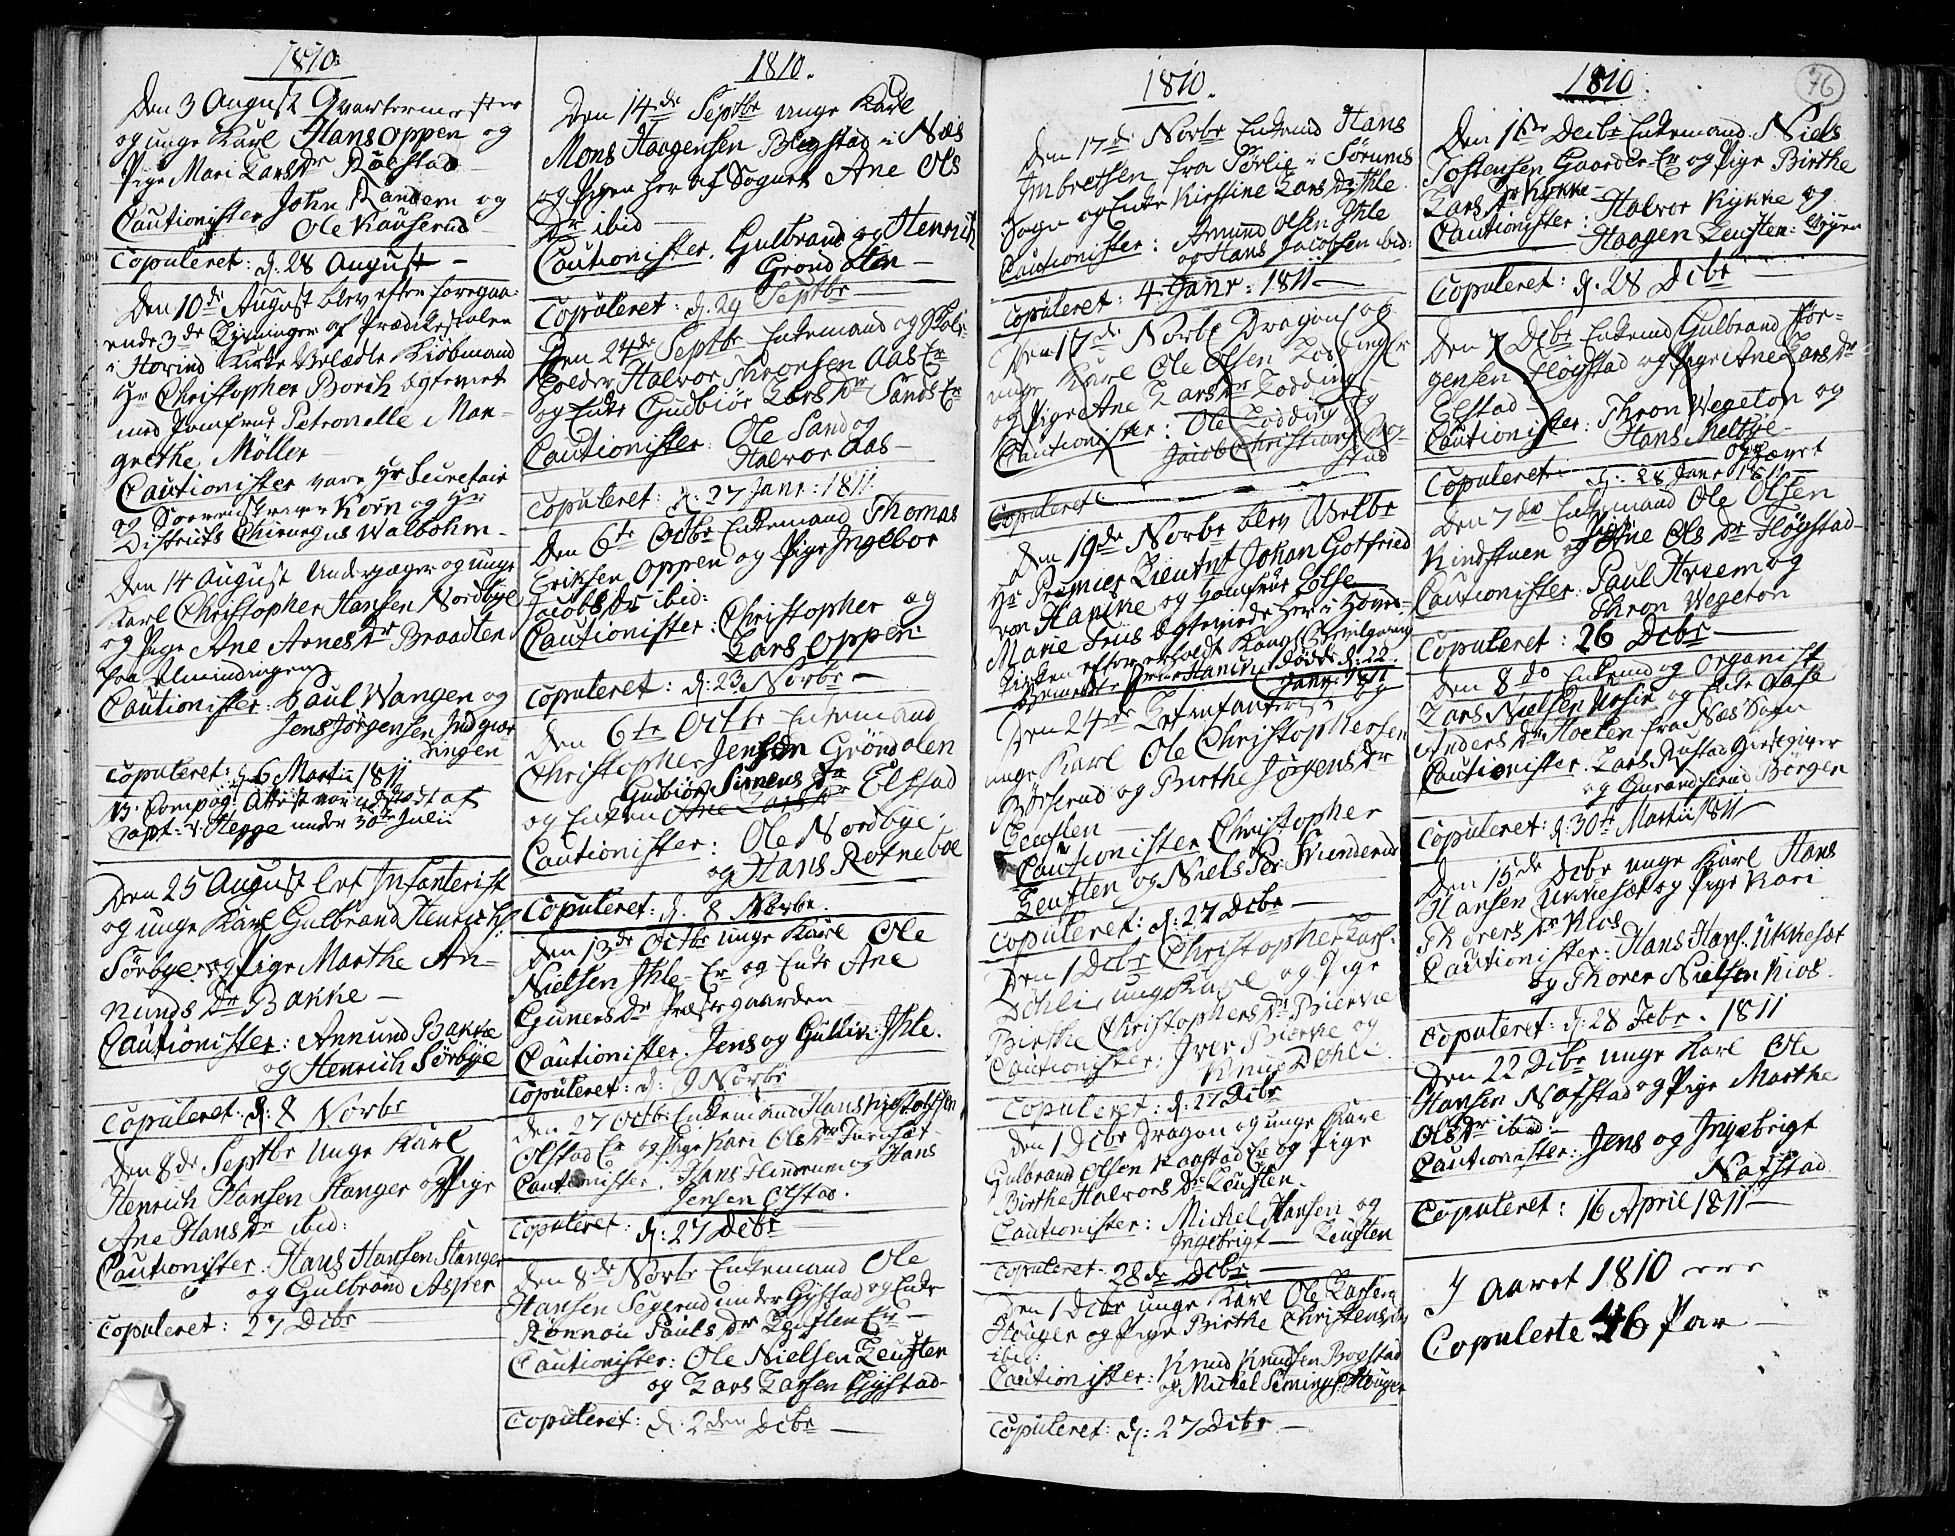 1810.
Den 3 August Qvartermester
og unge Karl Hans Oppen og
Pige Mari Larsdr Rølstad
Cautionister John Randem og
Ole Kauserud
Copuleret: d: 28 August —
Den 10de August blev efter foregaa-
ende 3de Lysninger af Prædikestolen
i Hovind Kirke Velædle Kiøbmand
Hr Christopher Borch ægteviet
med Jomfrue Petronelle Mar-
grethe Møller
Cautionister vare Hr Secretair
og Sorenskriver Korn og Hr
Districts Chirurgus Walbohm.
Den 14 August Underjæger og unge
Karl Christopher Hansen Nordbye
og Pige Ane Arnesdr Braadten
fra Almindingen
Cautionister: Paul Wangen og
Jens Jørgensen
Copuleret: d: 6 Martii 1811
under 30te Julii
Den 25 August Let Infanterist
og unge Karl Gulbrand Henrichs:
Sørbye og Pige Marthe An-
nunds Dr Bakke —
Cautionister: Annund Bakke
og Henrich Sørbye
Copuleret: d: 8 Novbr
Den 8de Septbr Unge Karl
Henrich Hansen Stanger og Pige
Ane Hans Dr ibid:
Cautionister: Hans Hansen Stanger
og Gulbrand Asper
Copuleret: 27 Dcbr
1810.
Den 14de Septbr unge Karl
Mons Haagensen Blegstad i Næs
og Pigen her af Sognet Ane Ols
Dr ibid —
Cautionister: Gulbrand og Henrich
Grøndalen —
Copuleret: d: 29 Septbr —
Den 24de Septbr Enkemand og Skole-
holder Halvor Thronsen Aas Er
og Enke Gudbiør Lars Dr Sands Er
Cautionister: Ole Sand og
Halvor Aas —
Copuleret: d: 27 Janr: 1811
Den 6te Octbr Enkemand Thomas
Eriksen Oppen og Pige Ingebor
Jacobs Dr ibid:
Cautionister: Christopher og
Lars Oppen:
Copuleret: d: 23 Novbr —
Den 6te Octbr Enkemand
Christopher Jensen Grøndalen
Gudbiør Simens Dr
og Enken Ane Lars Dr Elstad
Cautionister: Ole Nordbye
og Hans Rotneboe
Copuleret: d. 8 Novbr.
Den 13de Octbr unge Karl Ole
Nielsen Ihle Er og Enke Ane
Guners Dr Præstegaarden
Cautionister. Jens og Gulliv: Ihle.
Copuleret: d: 9 Novbr
Den 27 Octbr Enkemand Hans
Olstad Er og Pige Kari Ols Dr
Cautionister: Hans Hindrum og Hans
Jensen Olstad.
Copuleret: d: 27 Dcbr
Den 8de Novbr Enkemand Ole
Hansen Segerud under Gystad og Enke
Rønnou Pauls Dr Leufsten Er —
Cautionister: Ole Nielsen Leufsten
og Lars Larsen Gystad.
Copuleret: d: 2den Dcbr —
1810.
Den 17de Novbr Enkemd Hans
Imbretsen fra Sørlie i Sørums
Sogn og Enke Kirstine Lars Dr Ihle.
Cautionister: Amund Olsen Ihle
og Hans Jacobsen ibid:
Copuleret: 4 Janr: 1811 —
Den 17de Novbr Dragon og
unge Karl Ole Olsen
og Pige Ane Lars Dr
Cautionister: Ole og
Jacob Christians
Copuleret
Den 19de Novbr blev Velbr
Hr Premier Lieutnt Johan Gotfried
von Hanche og Jomfrue Else
Marie Juus ægteviede her i Hoved-
kirken efter erholdt Kongl Bevilgning
døde d: 22
Janr 1811
Den 24de Let Infanterist og
unge Karl Ole Christophersen
Børserud og Birthe Jørgens Dr
Leufsten
Cautionister Christopher
Leufsten og Niels Per:
Copuleret: d: 27 Dcbr —
Den 1 Dcbr Christopher Lars:
Dehli, unge Karl og Pige
Birthe Christophers Dr Bierke
Cautionister: Iver Bierke og
Knud Dehli
Copuleret: d: 27 Dcbr
Den 1 Dcbr Dragon og unge Karl
Gulbrand Olsen Raastad Er og Pige
Birthe Halvors Dr Leufsten.
Cautionister: Michel Hansen og
Ingebrigt — Leufsten
Copuleret: 28de Dcbr —
Den 1 Dcbr unge Karl Ole Larsen
Houger og Pige Birthe Christens Dr
ibid:
Cautionister: Knud Knudsen Bogstad
og Michel Semings: Houger
Copuleret: d: 27 Dcbr —
76
1810.
Den 1ste Decbr Enkemand Niels
Tostensen Gaarder Er og Pige Birthe
Lars Dr Kykke
Cautionister: Halvor Kykke og
Haagen Leufsten
Copuleret: d. 28 Dcbr
Den 7 Dcbr Enkemd Gulbrand Jør-
gensen Høgstad og Pige Ane Lars Dr
Elstad —
Cautionister: Thron Wegeton og
Hans Melbye —
Copuleret: d: 28 Janr 1811
Den 7de Enkemand Ole Olsen
og Ane Ols Dr Høgstad
Cautionister: Paul Hvem og
Thron Wegeton
Copuleret: 26 Dcbr —
Den 8de Enkemd og Organist
Lars Nielsen og Enke Aase
Anders Dr Holten fra Næs Sogn
Cautionister. Lars Giestgiver
og Borgen
Copuleret: d: 30te Martii 1811
Den 15de Dcbr unge Karl Hans
Hansen Ukkesæt og Pige Kari
Thorers Dr Kios
Cautionister: Hans Hans: Ukkesæt
og Thorer Nielsen Kios.
Copuleret: d: 28 Febr. 1811
Den 22 Dcbr unge Karl Ole
Hansen Nafstad og Pige Marthe
Ols Dr ibid —
Cautionister: Jens og Ingebrigt
Nafstad
Copuleret: 16 April 1811 —
I Aaret 1810 ere
Copulerte 46 Par —